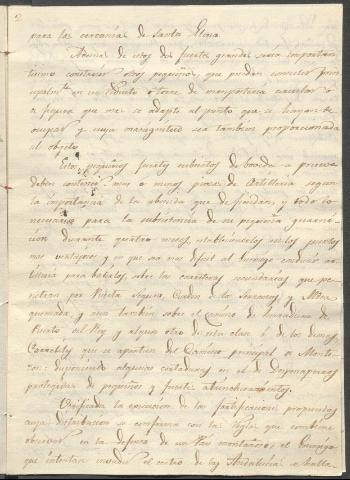 2
para las cercanías de Santa Elena.
Ademas de estos dos fuertes grandes, seria important
isimo construir otros pequeños, que pueden consistir prin
cipalmte en un reducto o torre de mamposteria circular o
la figura que mas se adapte al punto que se haya de
ocupar y cuya magnitud sea tambien proporcionada
al objeto.
Estos pequeños fuertes cubiertos de boveda a prueva
deben contener mas o menos piezas de Artilleria segun
la importancia de la abenida que defiendan, y todo lo
necesario para la subsistencia de su pequeña guarni
cion durante quatro meses, estableciendolos en los puntos
mas ventajosos y en que sea mas dificil al Enemigo conducir ar
tilleria para batirlos sobre las carreteras secundarias que pe
netran por Puebla Segura, y Alde
quemada, y aun tambien sobre el camino de
Puerto del Rey y alguno otro de esta clase de los demas
Carretiles que se aparten del Camino principal a Monti
zon: disponiendo algunas cortaduras en el de Despeñaperros
protegidas de pequeños y fuertes atrincheramientos.
Verificada la egecucion de las fortificaciones propuestas
cuya distribucion se conforma con la regla que combiene
observar en la defensa de un Pais montañoso, el Enemigo
que intentase invadir el centro de las Andalucias se halla